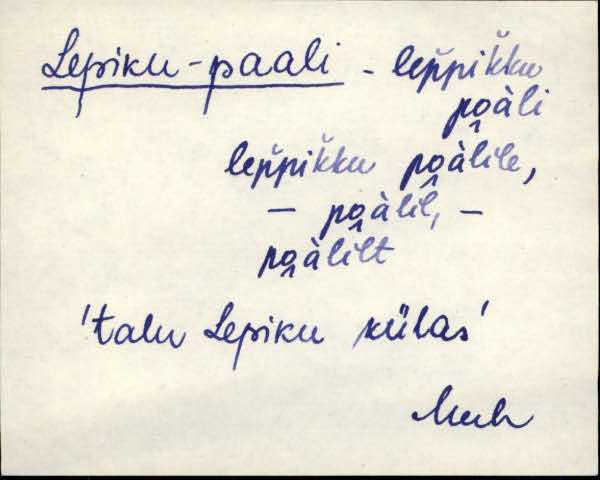 Lepiku-paali - lep̆pik̆ku
po̭àli
lep̆pik̆ku po̭àlile,
— po̭àlil, —
po̭àlilt
'talu Lepiku külas'
Muh